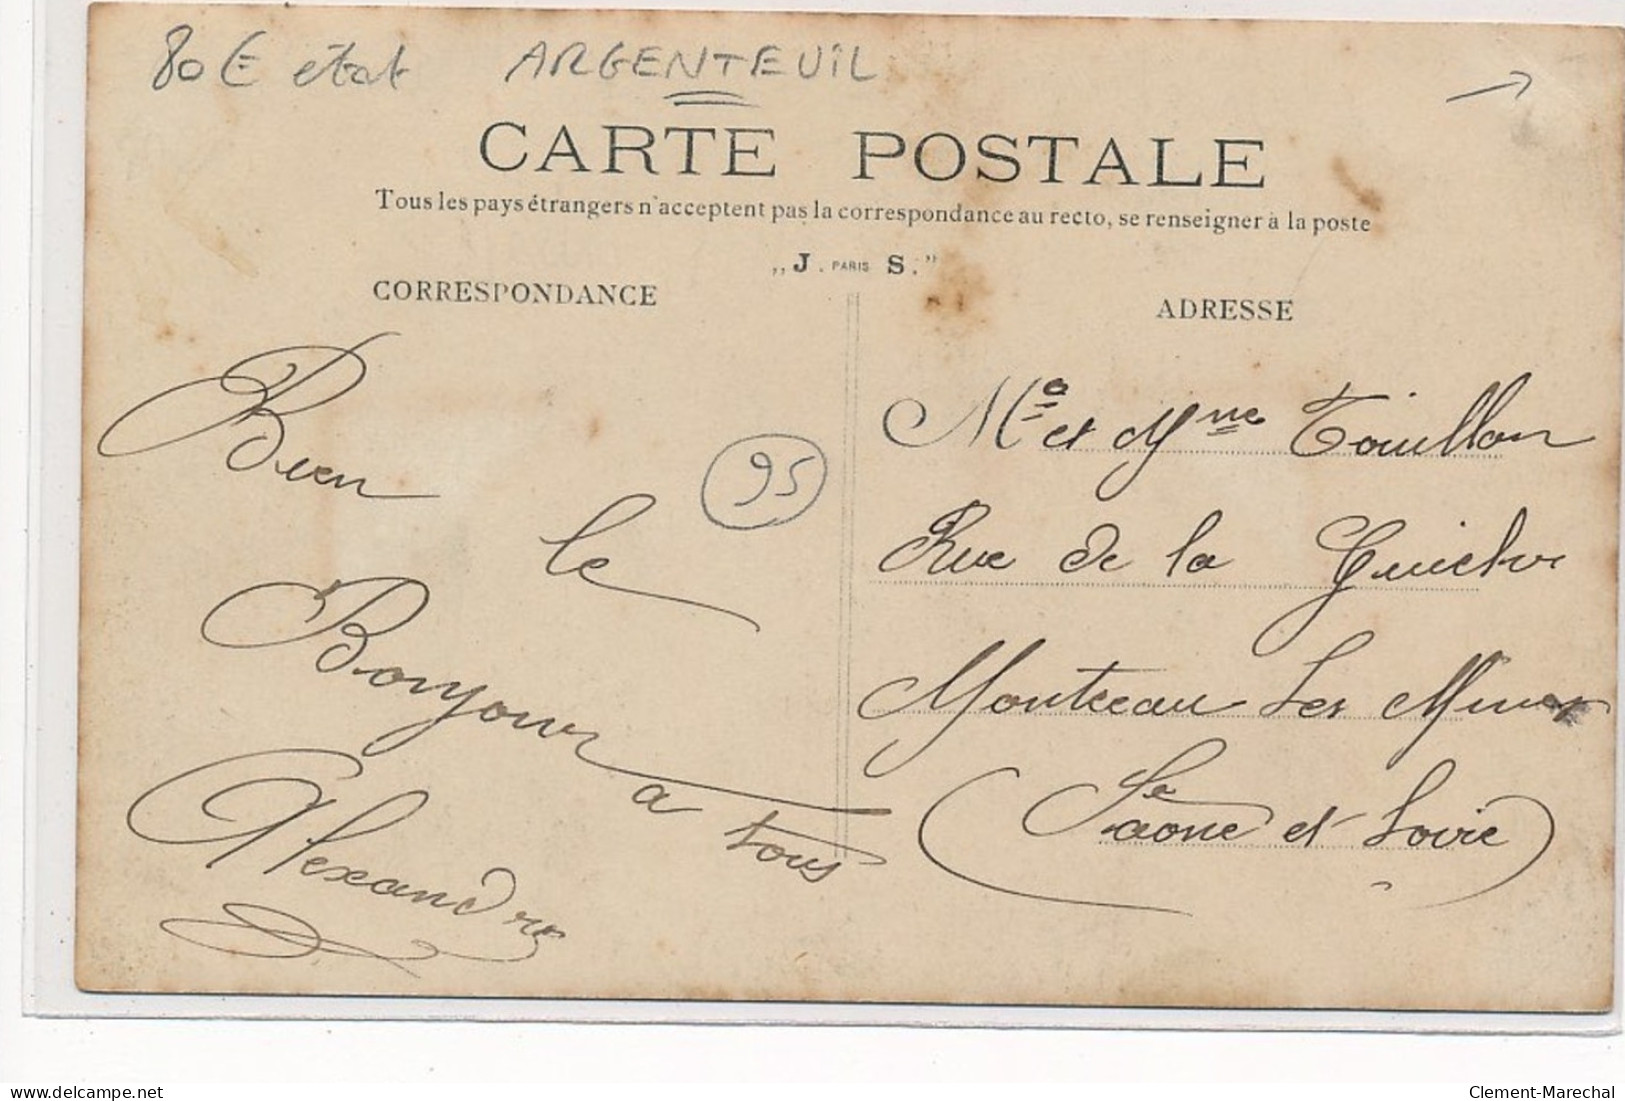 80 E état ARGENTEUIL
CARTE POSTALE
Tous les pays étrangers n'acceptent pas la correspondance au recto, se renseigner à la poste
„J. PARIS S."
CORRESPONDANCE
Bien
le
Bonjour
a tous
Alexandre
95
ADRESSE
Mr et Mme
Rue de la
Montceau Les Mines
Saone et Loire
delcampe.net
Clement-Marechal